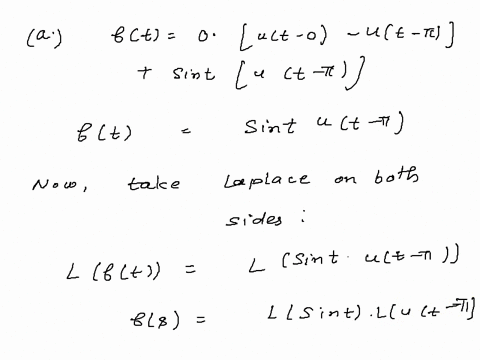 (a.) f(t) = 0. [u(t-0) - u(t-π)]
+ sint [u (t-π)]
f(t) = sint u(t-π)
Now, take Laplace on both
sides:
L (f(t)) = L (sint. u(t-π))
f(s) = L(sint).L[u(t-π)]